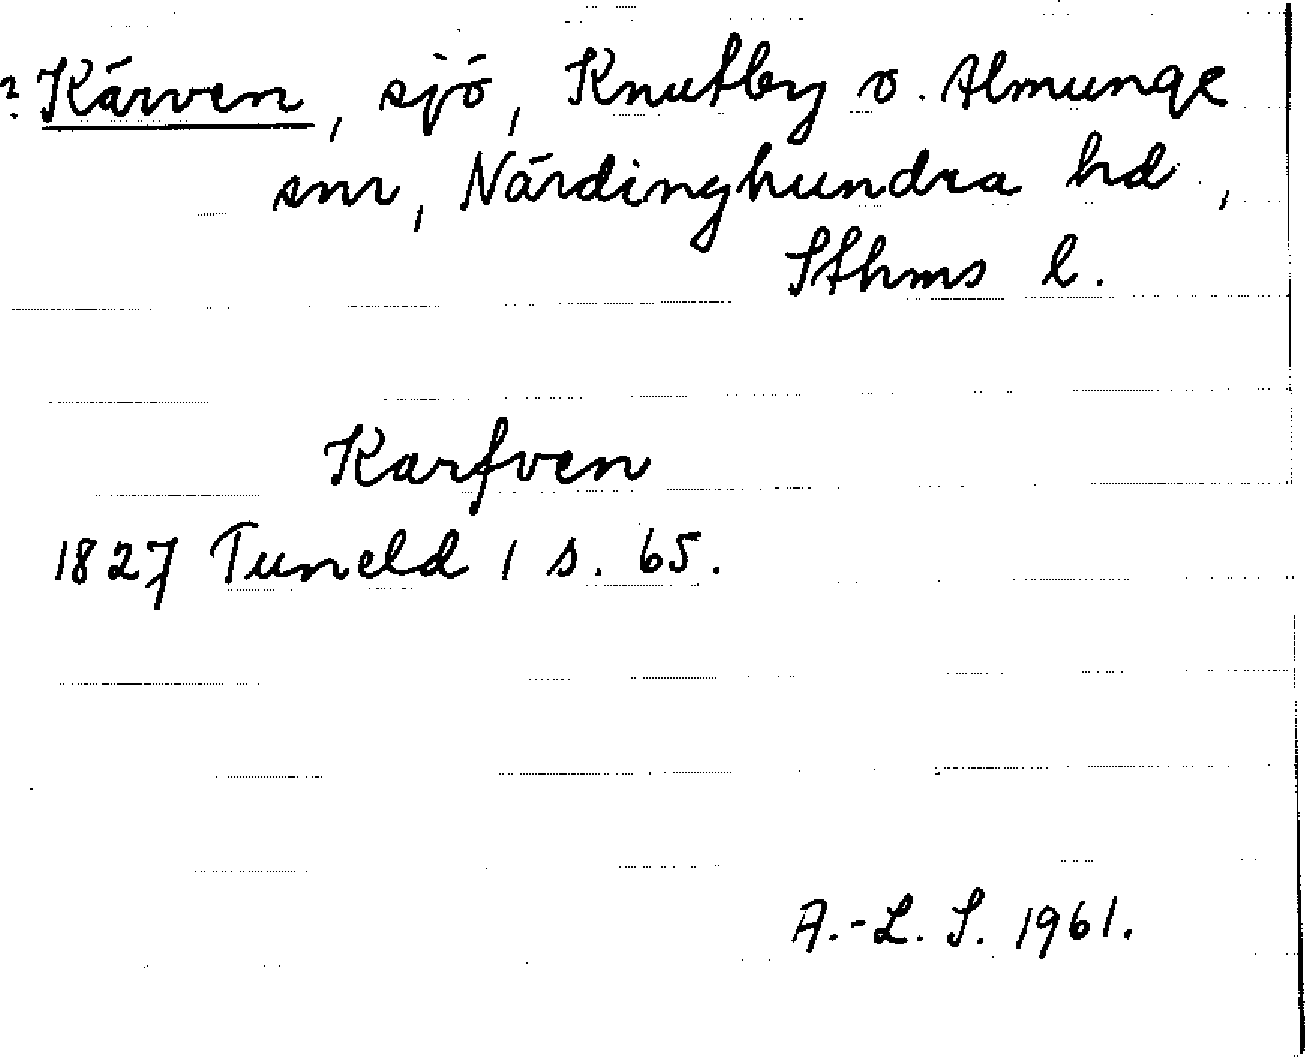 ? Kärven, sjö, Knutby o. Almunge
snr, Närdinghundra hd.,
Sthms l.
Karfven
1827 Tuneld 1 s. 65.
A.-L. S. 1961.